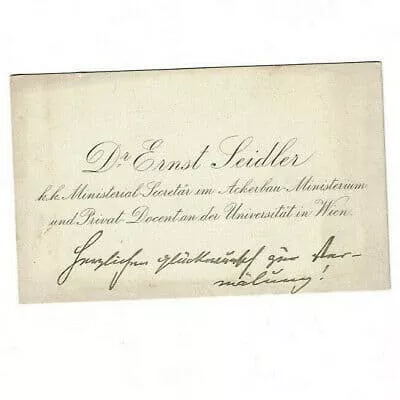 Dr. Ernst Seidler
k.k. Ministerial-Secretär im Ackerbau-Ministerium
und Privat-Docent an der Universität in Wien.
Herzlichen Glückwunsch zur Ver-
mälung!